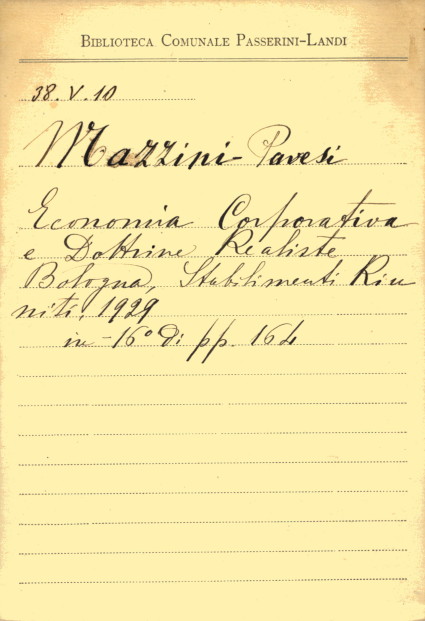 BIBLIOTECA COMUNALE PASSERINI-LANDI
38.V.10
Mazzini-Pavesi
Economia Corporativa
e Dottrine Realiste
Bologna, Stabilimenti Riu
niti, 1929
in-16° di pp. 164